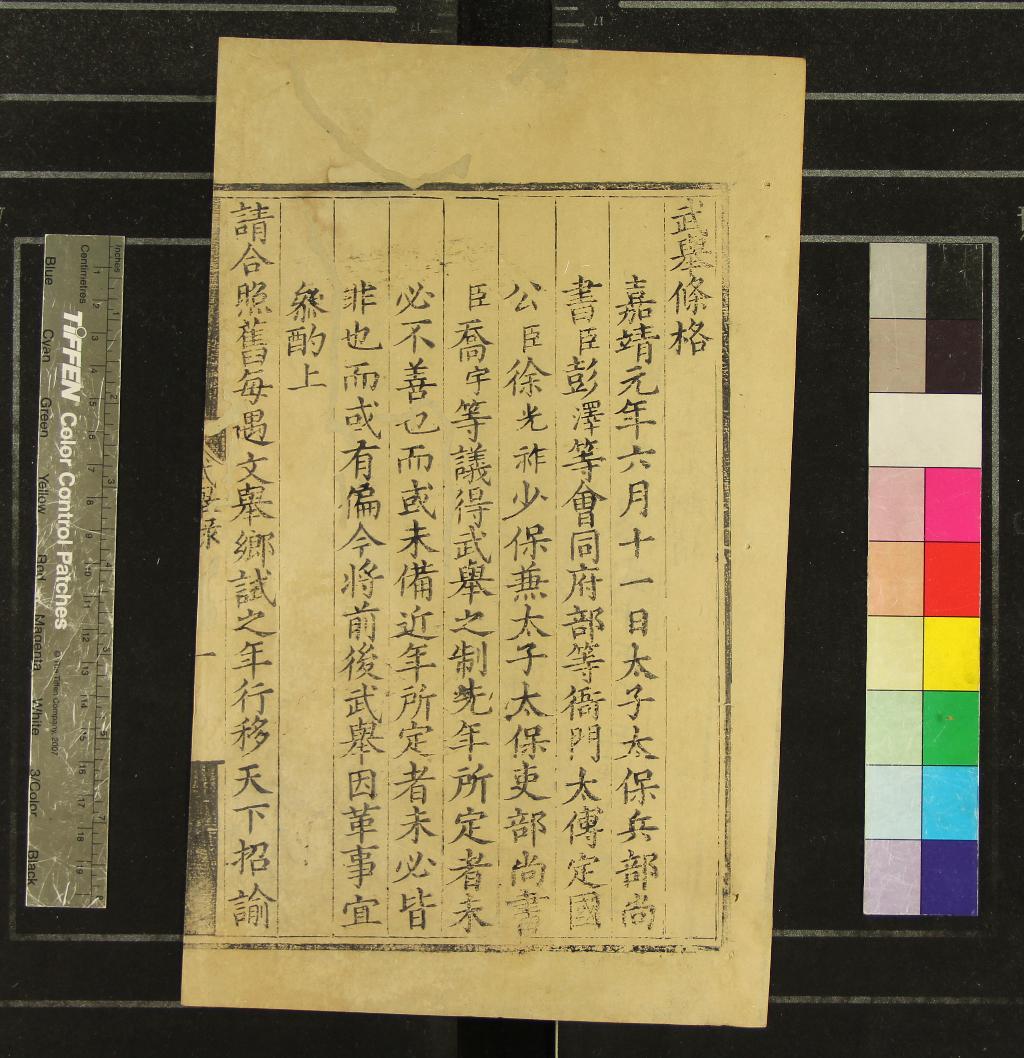 武舉條格
嘉靖元年六月十一日太子太保兵部尚
書臣彭澤等會同府部等衙門太傅定國
公臣徐光祚少保兼太子太保吏部尚書
臣喬宇等議得武舉之制先年所定者未
必不善也而或未備近年所定者未必皆
非也而或有偏今將前後武舉因革事宜
叅酌上
請合照舊每遇文舉鄉試之年行移天下招諭
武舉錄
一
Inches
Centimetres
TIFFEN Color Control Patches
© The Tiffen Company, 2007
Blue
Cyan
Green
Yellow
Red
Magenta
White
3/Color
Black